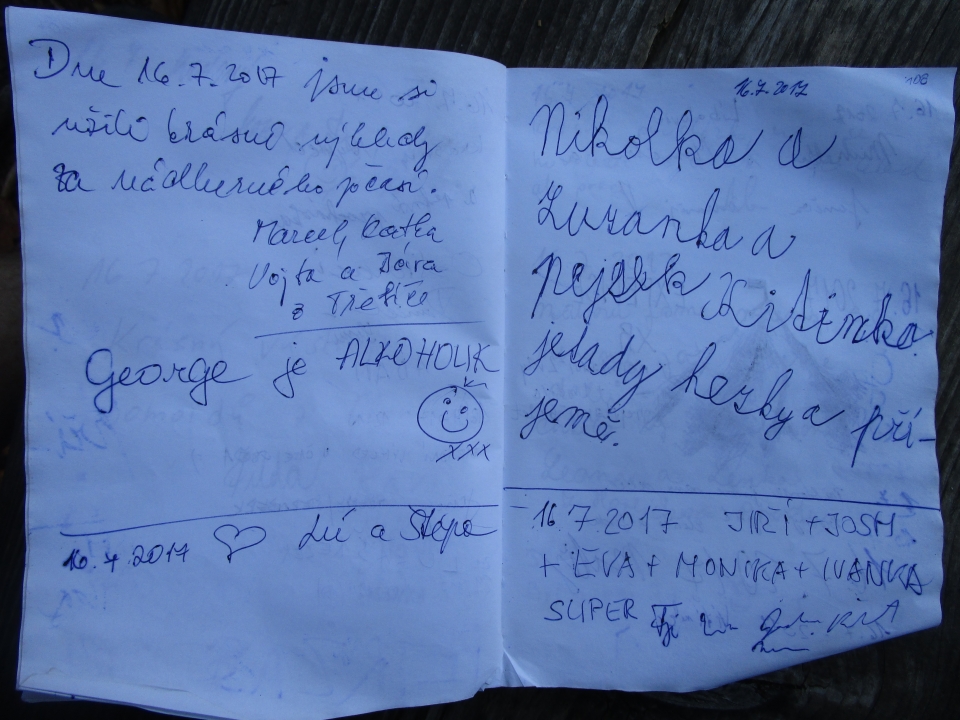 Dne 16.7.2017 jsme si
užili krásné výhledy
za nádherného počasí.
Marcel, Katka
Vojta a Bára
z Třebíče
George je ALKOHOLIK
XXX
16.7.2017 Lú a Štěpa
16.7.2017
108
Nikolka a
Zuzanka a
pejsek Kitinka
je tady hezky a pří-
jemě.
16.7.2017 JIŘÍ + JOSH
+ EVA + MONIKA + IVANKA
SUPER